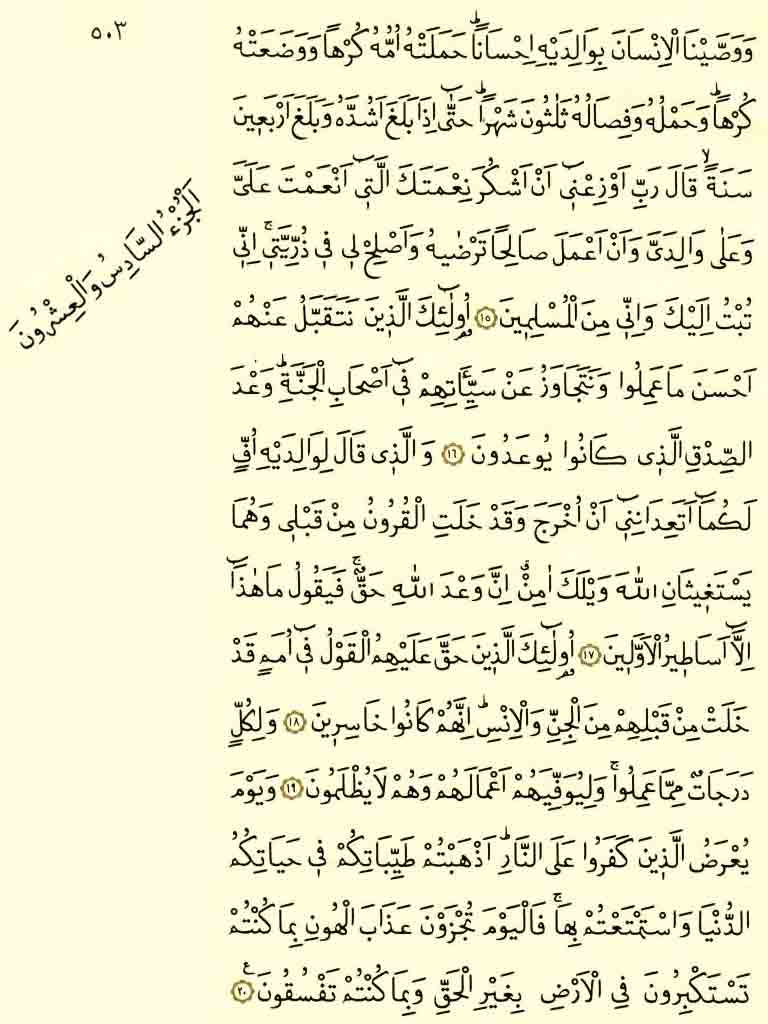 ٥٠٣
وَوَصَّيْنَا الْاِنْسَانَ بِوَالِدَيْهِ اِحْسَانًاۜ حَمَلَتْهُ اُمُّهُ كُرْهًا وَوَضَعَتْهُ
كُرْهًاۜ وَحَمْلُهُ وَفِصَالُهُ ثَلٰثُونَ شَهْرًاۜ حَتّٰٓى اِذَا بَلَغَ اَشُدَّهُ وَبَلَغَ اَرْبَع۪ينَ
سَنَةًۙ قَالَ رَبِّ اَوْزِعْن۪ٓي اَنْ اَشْكُرَ نِعْمَتَكَ الَّت۪ٓي اَنْعَمْتَ عَلَيَّ
وَعَلٰى وَالِدَيَّ وَاَنْ اَعْمَلَ صَالِحًا تَرْضٰيهُ وَاَصْلِحْ ل۪ي ف۪ي ذُرِّيَّت۪يۚ اِنّ۪ي
تُبْتُ اِلَيْكَ وَاِنّ۪ي مِنَ الْمُسْلِم۪ينَ ١٥ اُو۬لٰٓئِكَ الَّذ۪ينَ نَتَقَبَّلُ عَنْهُمْ
اَحْسَنَ مَا عَمِلُوا وَنَتَجَاوَزُ عَنْ سَيِّـَٔاتِهِمْ ف۪ٓي اَصْحَابِ الْجَنَّةِۜ وَعْدَ
الصِّدْقِ الَّذ۪ي كَانُوا يُوعَدُونَ ١٦ وَالَّذ۪ي قَالَ لِوَالِدَيْهِ اُفٍّ
لَكُمَٓا اَتَعِدَانِن۪ٓي اَنْ اُخْرَجَ وَقَدْ خَلَتِ الْقُرُونُ مِنْ قَبْل۪ي وَهُمَا
يَسْتَغ۪يثَانِ اللّٰهَ وَيْلَكَ اٰمِنْۗ اِنَّ وَعْدَ اللّٰهِ حَقٌّۚ فَيَقُولُ مَا هٰذَٓا
اِلَّٓا اَسَاط۪يرُ الْاَوَّل۪ينَ ١٧ اُو۬لٰٓئِكَ الَّذ۪ينَ حَقَّ عَلَيْهِمُ الْقَوْلُ ف۪ٓي اُمَمٍ قَدْ
خَلَتْ مِنْ قَبْلِهِمْ مِنَ الْجِنِّ وَالْاِنْسِۜ اِنَّهُمْ كَانُوا خَاسِر۪ينَ ١٨ وَلِكُلٍّ
دَرَجَاتٌ مِمَّا عَمِلُواۚ وَلِيُوَفِّيَهُمْ اَعْمَالَهُمْ وَهُمْ لَا يُظْلَمُونَ ١٩ وَيَوْمَ
يُعْرَضُ الَّذ۪ينَ كَفَرُوا عَلَى النَّارِۜ اَذْهَبْتُمْ طَيِّبَاتِكُمْ ف۪ي حَيَاتِكُمُ
الدُّنْيَا وَاسْتَمْتَعْتُمْ بِهَاۚ فَالْيَوْمَ تُجْزَوْنَ عَذَابَ الْهُونِ بِمَا كُنْتُمْ
تَسْتَكْبِرُونَ فِي الْاَرْضِ بِغَيْرِ الْحَقِّ وَبِمَا كُنْتُمْ تَفْسُقُونَ ع ٢٠
اَلْجُزْءُ السَّادِسُ وَالْعِشْرُونَ